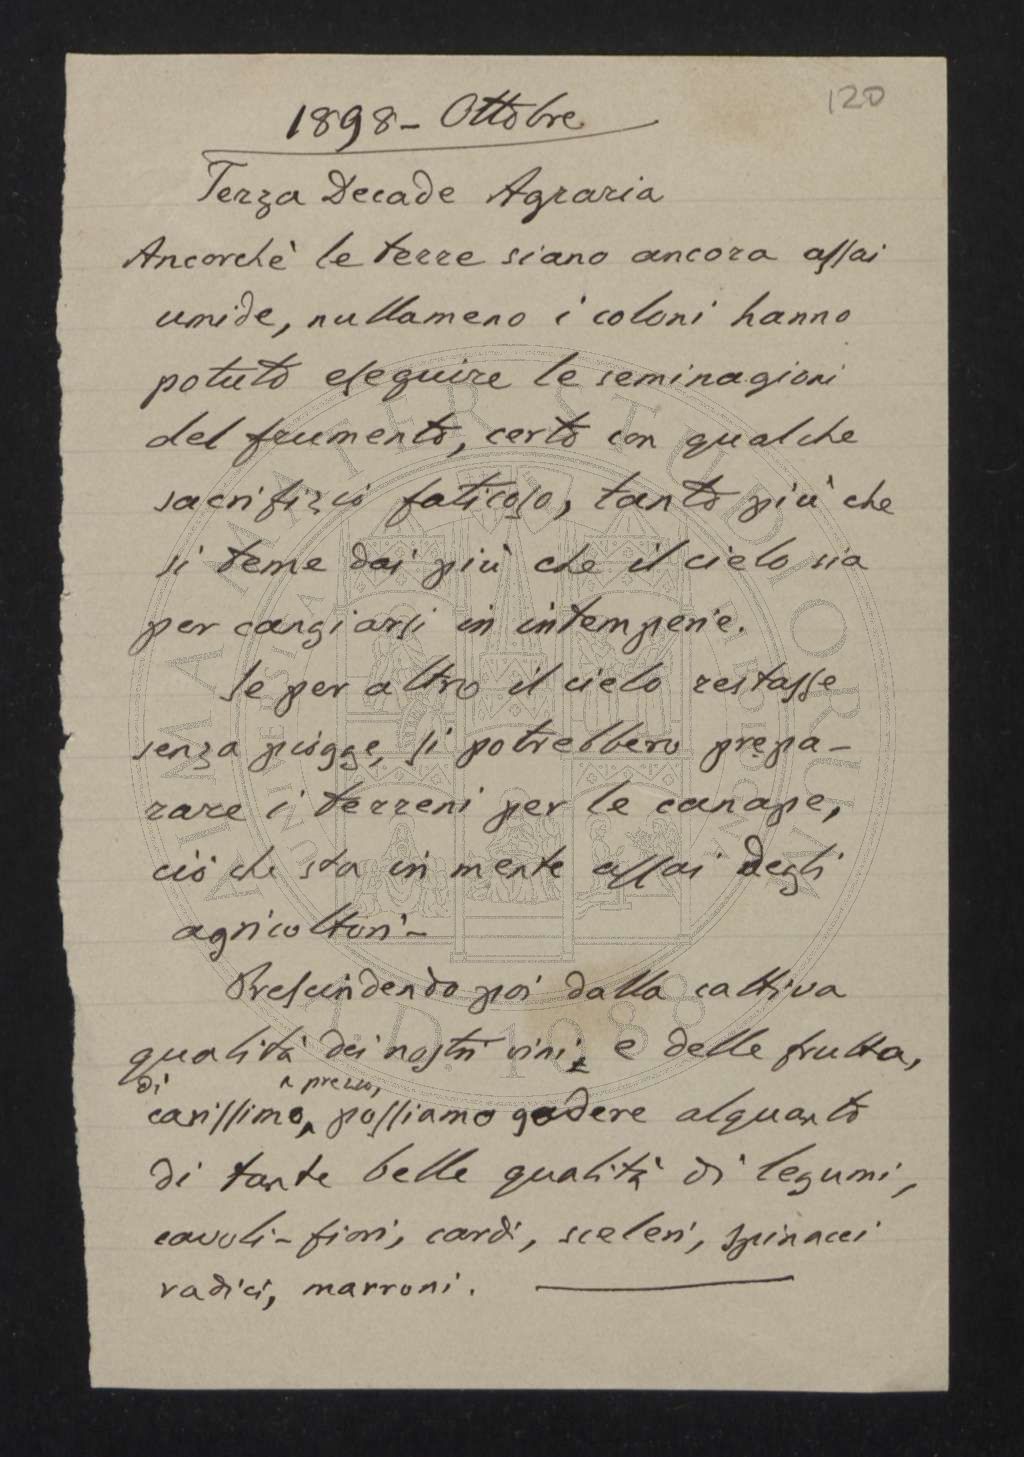 120
1898 - Ottobre
Terza Decade Agraria
Ancorchè le terre siano ancora assai
umide, nullameno i coloni hanno
potuto eseguire le seminagioni
del frumento, certo con qualche
sacrifizio faticoso, tanto più che
si teme dai più che il cielo sia
per cangiarsi in intemperie.
Se per altro il cielo restasse
senza piogge, si potrebbero prepa-
rare i terreni per le canape,
ciò che sta in mente assai degli
agricoltori -
Prescindendo poi dalla cattiva
qualità dei nostri vini, e delle frutta,
di prezzo,
carissimo, possiamo godere alquanto
di tante belle qualità di legumi,
cavoli-fiori, cardi, sceleri, spinacci
radici, marroni.
ALMA MATER STUDIORUM
A.D. 1088